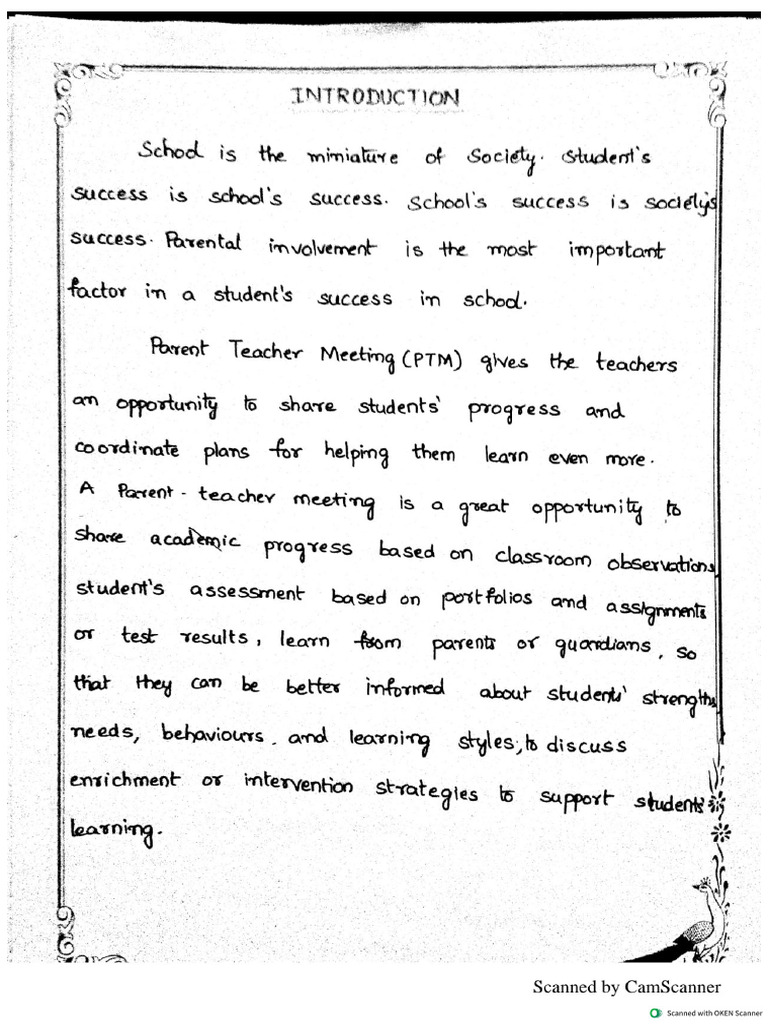 INTRODUCTION
School is the miniature of Society. Student's
success is school's success. School's success is society's
success. Parental involvement is the most important
factor in a student's success in school.
Parent Teacher Meeting (PTM) gives the teachers
an opportunity to share students' progress and
coordinate plans for helping them learn even more.
A Parent-teacher meeting is a great opportunity to
share academic progress based on classroom observations
student's assessment based on portfolios and assignments
or test results, learn from parents or guardians, so
that they can be better informed about students' strengths
needs, behaviours, and learning styles, to discuss
enrichment or intervention strategies to support students'
learning.
Scanned by CamScanner
Scanned with OKEN Scanner